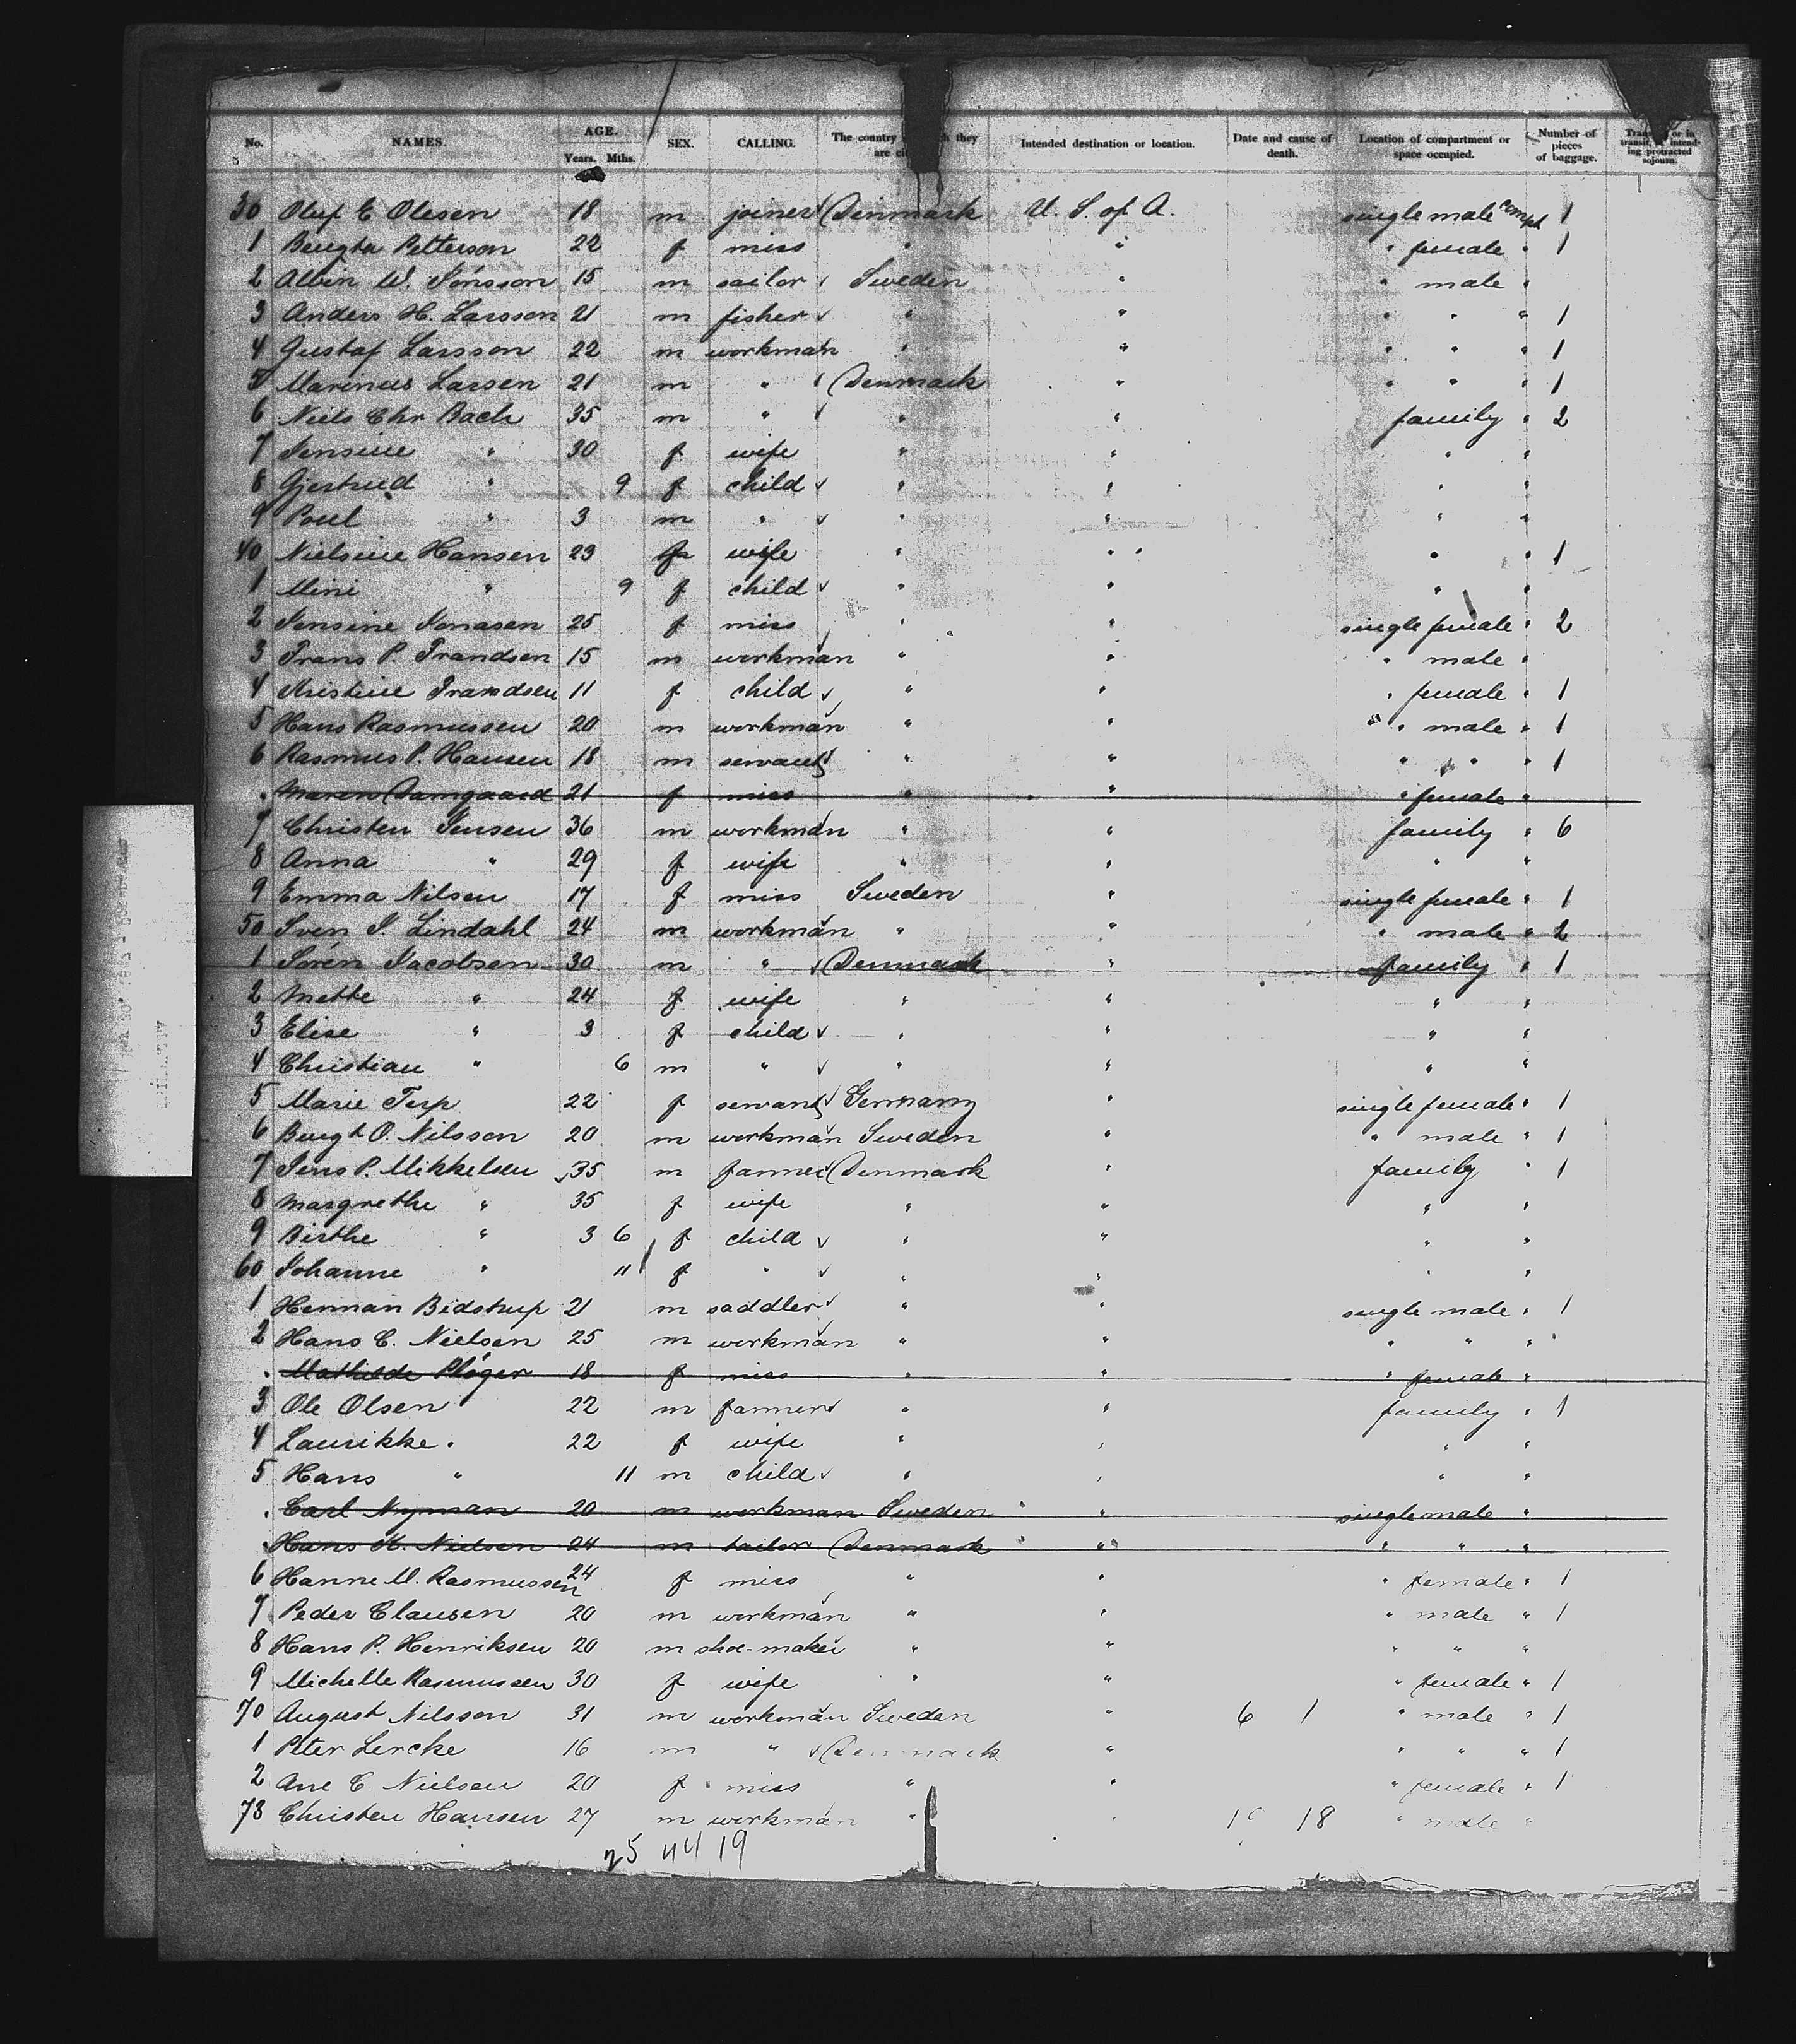 No. NAMES. AGE. Years. Mths. SEX. CALLING. The country they are Intended destination or location. Date and cause of death. Location of compartment or space occupied. Number of pieces of baggage. or in transit, intending protracted sojourn.
30 Oluf C Olesen 18 m joiner Denmark U. S. of A. single male compt 1
1 Bengta Petterson 22 f miss " " " female " 1
2 Albin W. Jönsson 15 m sailor Sweden " " male "
3 Anders H. Larsson 21 m fisher " " " " " 1
4 Gustaf Larsson 22 m workman " " " " " 1
5 Marinus Larsen 21 m " Denmark " " " " 1
6 Niels Chr Bach 35 m " " " family " 2
7 Jensine " 30 f wife " " " "
8 Gjertrud " 9 f child " " " "
9 Poul " 3 m " " " " "
40 Nielsine Hansen 23 f wife " " " " 1
1 Mini " 9 f child " " " "
2 Jensine Jonasen 25 f miss " " single female " 2
3 Frans P. Frandsen 15 m workman " " " male "
4 Kristine Frandsen 11 f child " " " female " 1
5 Hans Rasmussen 20 m workman " " " male " 1
6 Rasmus P. Hansen 18 m servant " " " " " 1
. Maren Damgaard 21 f miss " " " female "
7 Christen Jensen 36 m workman " " family " 6
8 Anna " 29 f wife " " " "
9 Emma Nilsen 17 f miss Sweden " single female " 1
50 Sven J. Lindahl 24 m workman " " " male " 2
1 Sören Jacobsen 30 m " Denmark " family " 1
2 Mette " 24 f wife " " " "
3 Elise " 3 f child " " " "
4 Christian " 6 m " " " " "
5 Marie Terp 22 f servant Germany " single female " 1
6 Bengt O. Nilsson 20 m workman Sweden " " male " 1
7 Jens P. Mikkelsen 35 m farmer Denmark " family " 1
8 Margrethe " 35 f wife " " " "
9 Birthe " 3 6 f child " " " "
60 Johanne " 11 f " " " " "
1 Herman Bidstrup 21 m saddler " " single male " 1
2 Hans C. Nielsen 25 m workman " " " " " "
. Mathilde Pløger 18 f miss " " " female "
3 Ole Olsen 22 m farmer " " family " 1
4 Laurikke " 22 f wife " " " "
5 Hans " 11 m child " " " "
. Carl Nyman 20 m workman Sweden " single male "
. Hans K. Nielsen 24 m tailor Denmark " " " "
6 Hanne M. Rasmussen 24 f miss " " " female " 1
7 Peder Clausen 20 m workman " " " male " 1
8 Hans P. Henriksen 20 m shoe-maker " " " " "
9 Michelle Rasmussen 30 f wife " " " female " 1
70 August Nilsson 31 m workman Sweden " 6 1 " male " 1
1 Peter Lercke 16 m " Denmark " " " " 1
2 Ane C. Nielsen 20 f miss " " " female " 1
73 Christen Hansen 27 m workman " " 18 " male "
25 44 19